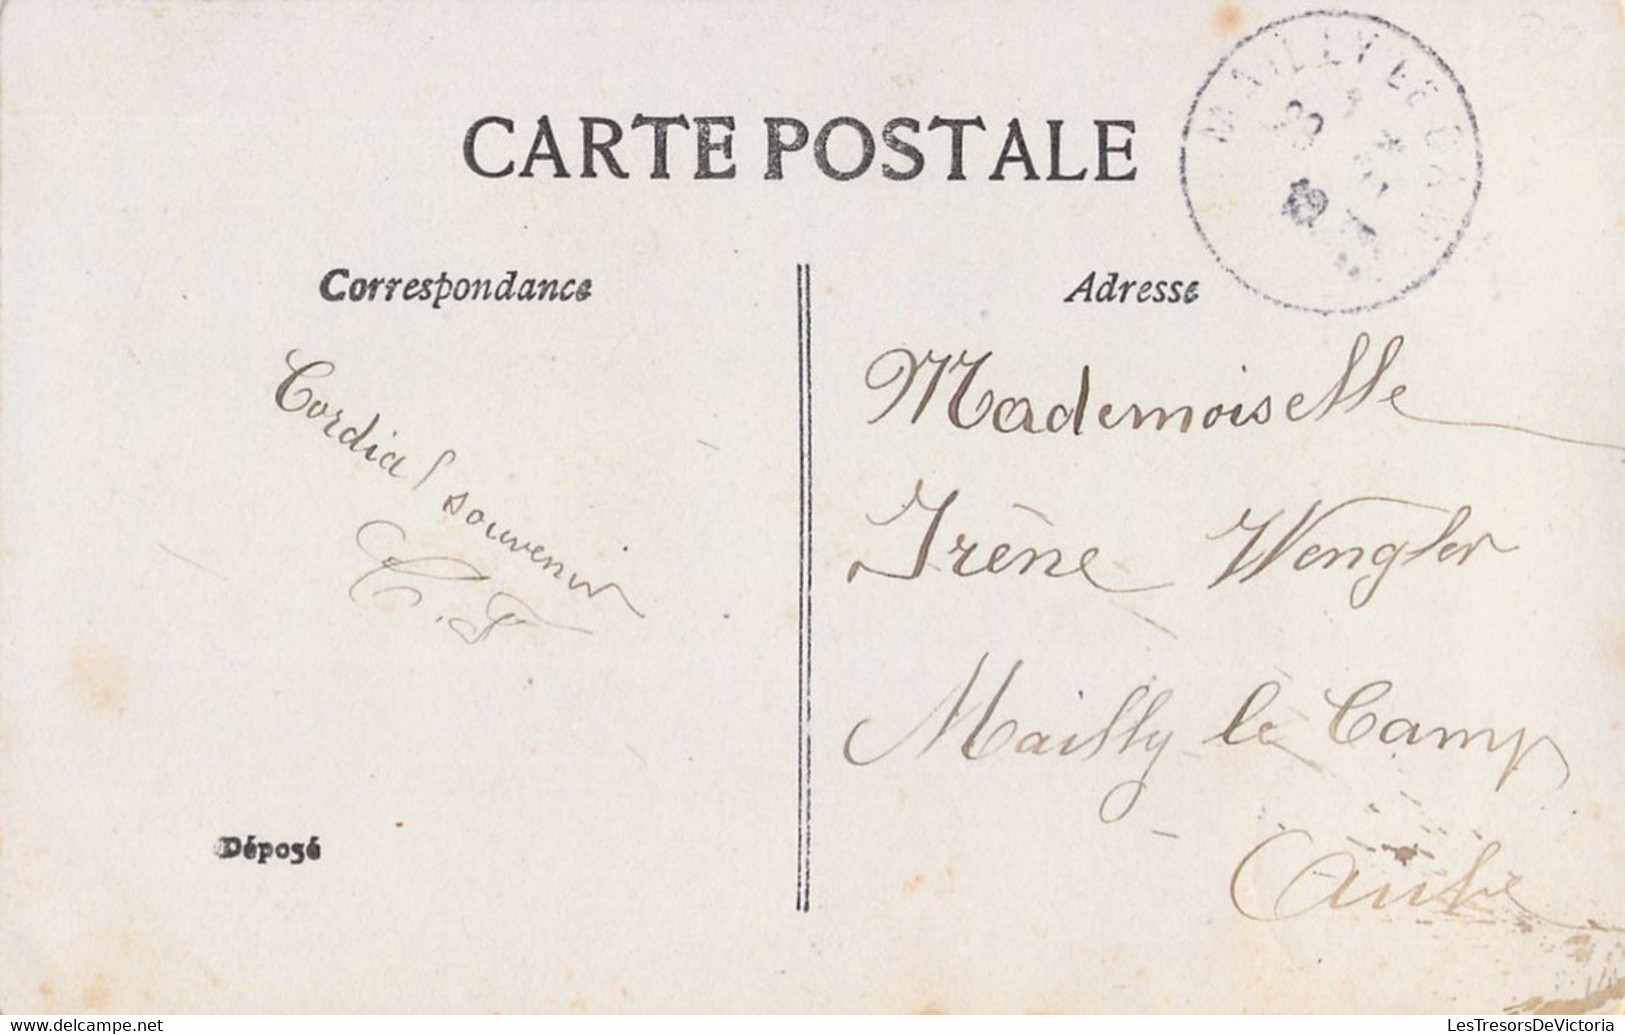 CARTE POSTALE
MAILLY LE CAMP
Correspondance
Cordial souvenir
C. F.
Déposé
Adresse
Mademoiselle
Irène Wengler
Mailly le Camp
Aube
www.delcampe.net
LesTresorsDeVictoria